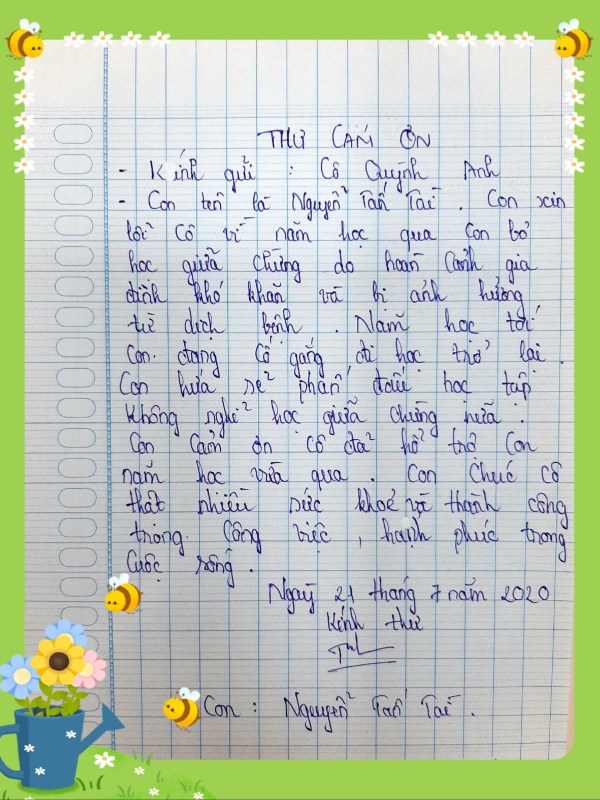 THƯ CÁM ƠN
- Kính gửi : Cô Quỳnh Anh
- Con tên là Nguyễn Tấn Tài . Con xin
lỗi cô vì năm học qua con bỏ
học giữa chừng do hoàn cảnh gia
đình khó khăn và bị ảnh hưởng
từ dịch bệnh . Năm học tới
con đang cố gắng đi học trở lại .
Con hứa sẽ phấn đấu học tập
không nghỉ học giữa chừng nữa .
Con cảm ơn cô đã hổ trợ con
năm học vừa qua . Con chúc cô
thật nhiều sức khoẻ và thành công
trong công việc , hạnh phúc trong
cuộc sống .
Ngày 21 tháng 7 năm 2020
Kính thư
Con : Nguyễn Tấn Tài .